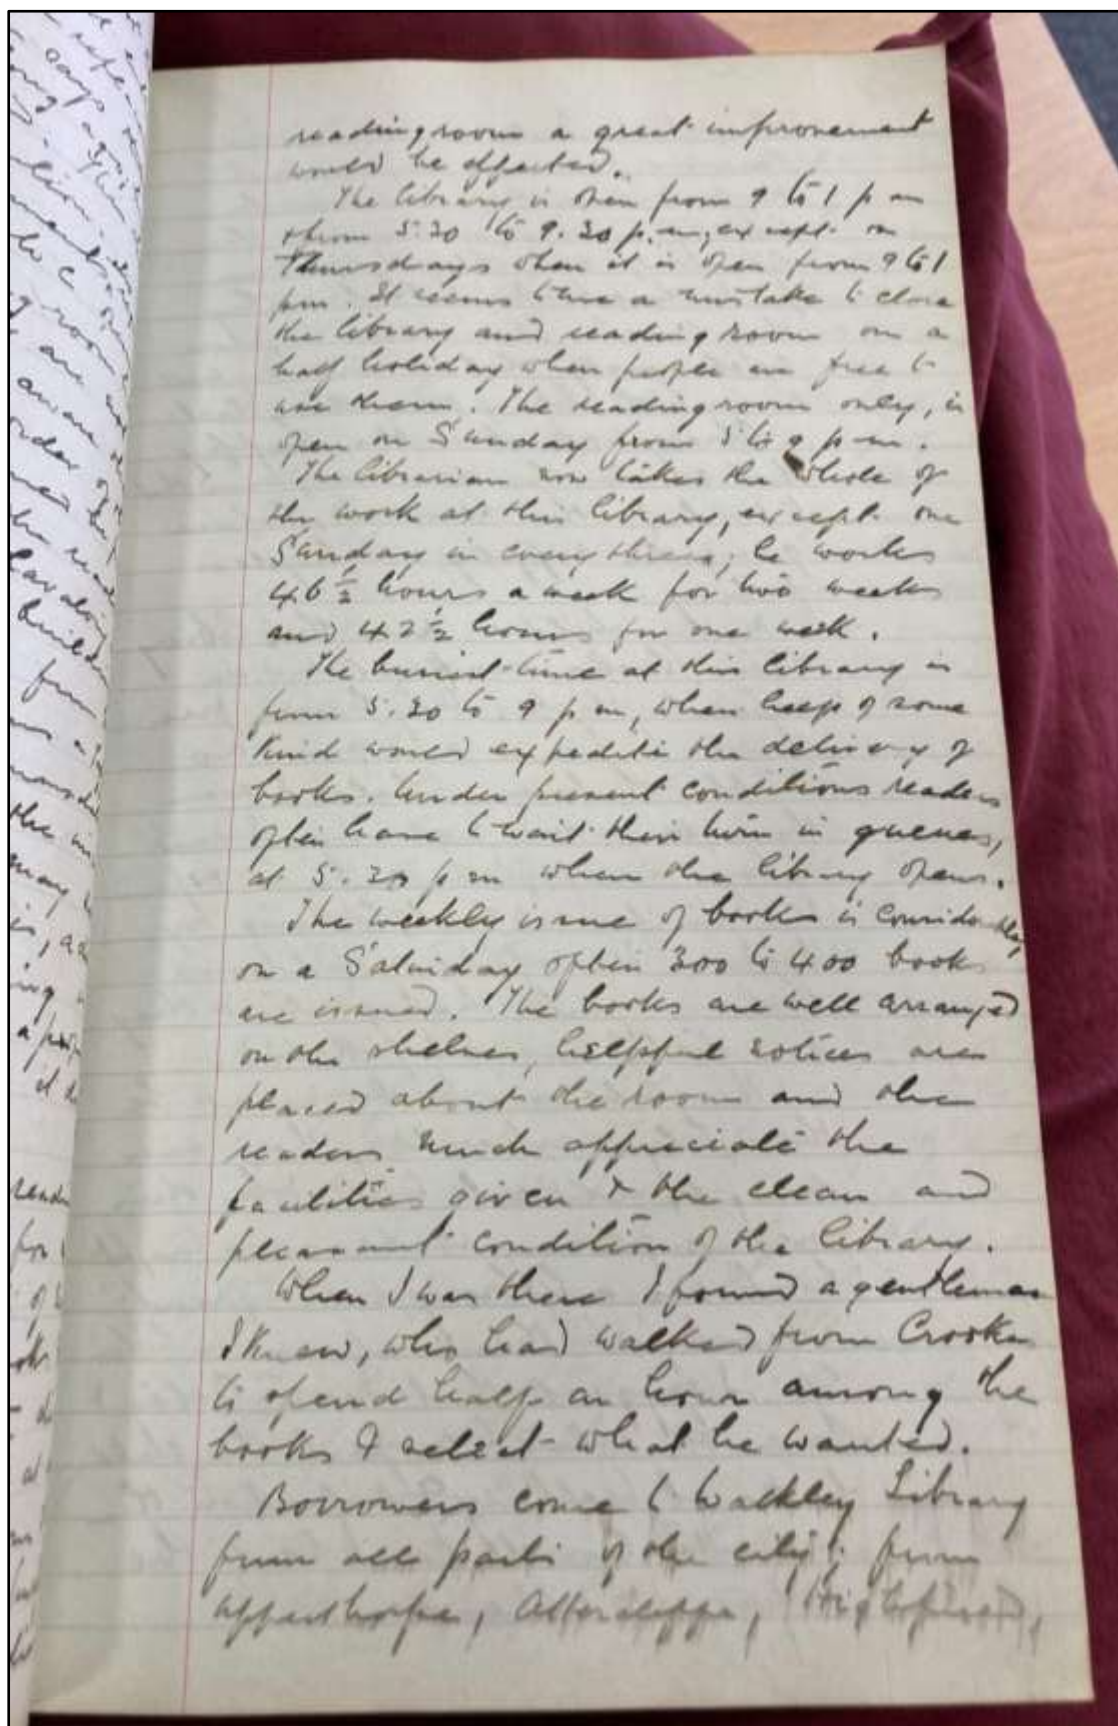 reading room a great improvement
would be effected.
The library is open from 9 to 1 p m
& from 5.30 to 9.30 p.m, except on
Thursdays when it is open from 9 to 1
pm. It seems to me a mistake to close
the library and reading room on a
half holiday when people are free to
use them. The reading room only, is
open on Sunday from 5 to 9 p m.
The librarian now takes the whole of
the work at this library, except one
Sunday in every three; he works
46 ½ hours a week for two weeks
and 42 ½ hours for one week.
The busiest time at this library is
from 5.30 to 9 p m, when help of some
kind would expedite the delivery of
books. Under present conditions readers
often have to wait their turn in queues,
at 5.30 p m when the library opens.
The weekly issue of books is considerable,
on a Saturday often 300 to 400 books
are issued. The books are well arranged
on the shelves, helpful notices are
placed about the room and the
readers much appreciate the
facilities given & the clean and
pleasant condition of the library.
When I was there I found a gentleman
I knew, who had walked from Crookes
to spend half an hour among the
books & select what he wanted.
Borrowers come to Walkley Library
from all parts of the city; from
Upperthorpe, Attercliffe, Highfield,